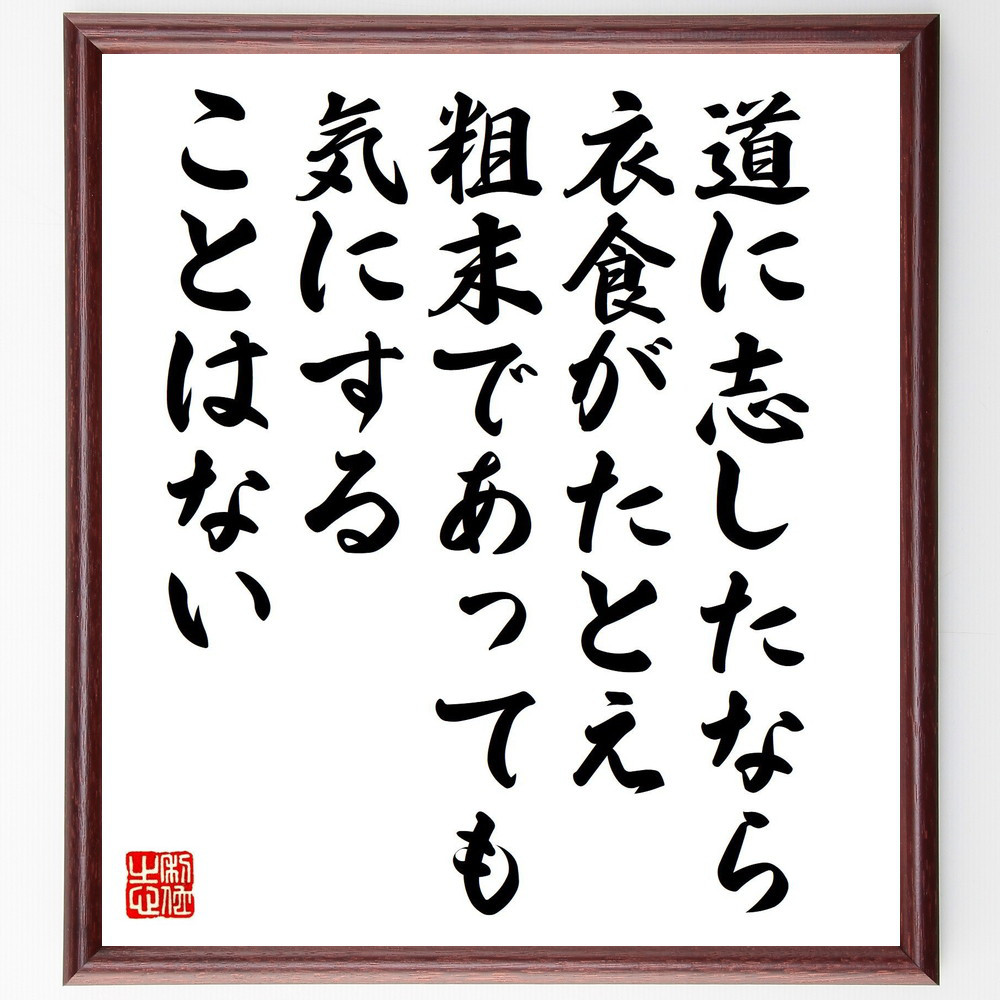 道に志したなら
衣食がたとえ
粗末であっても
気にする
ことはない